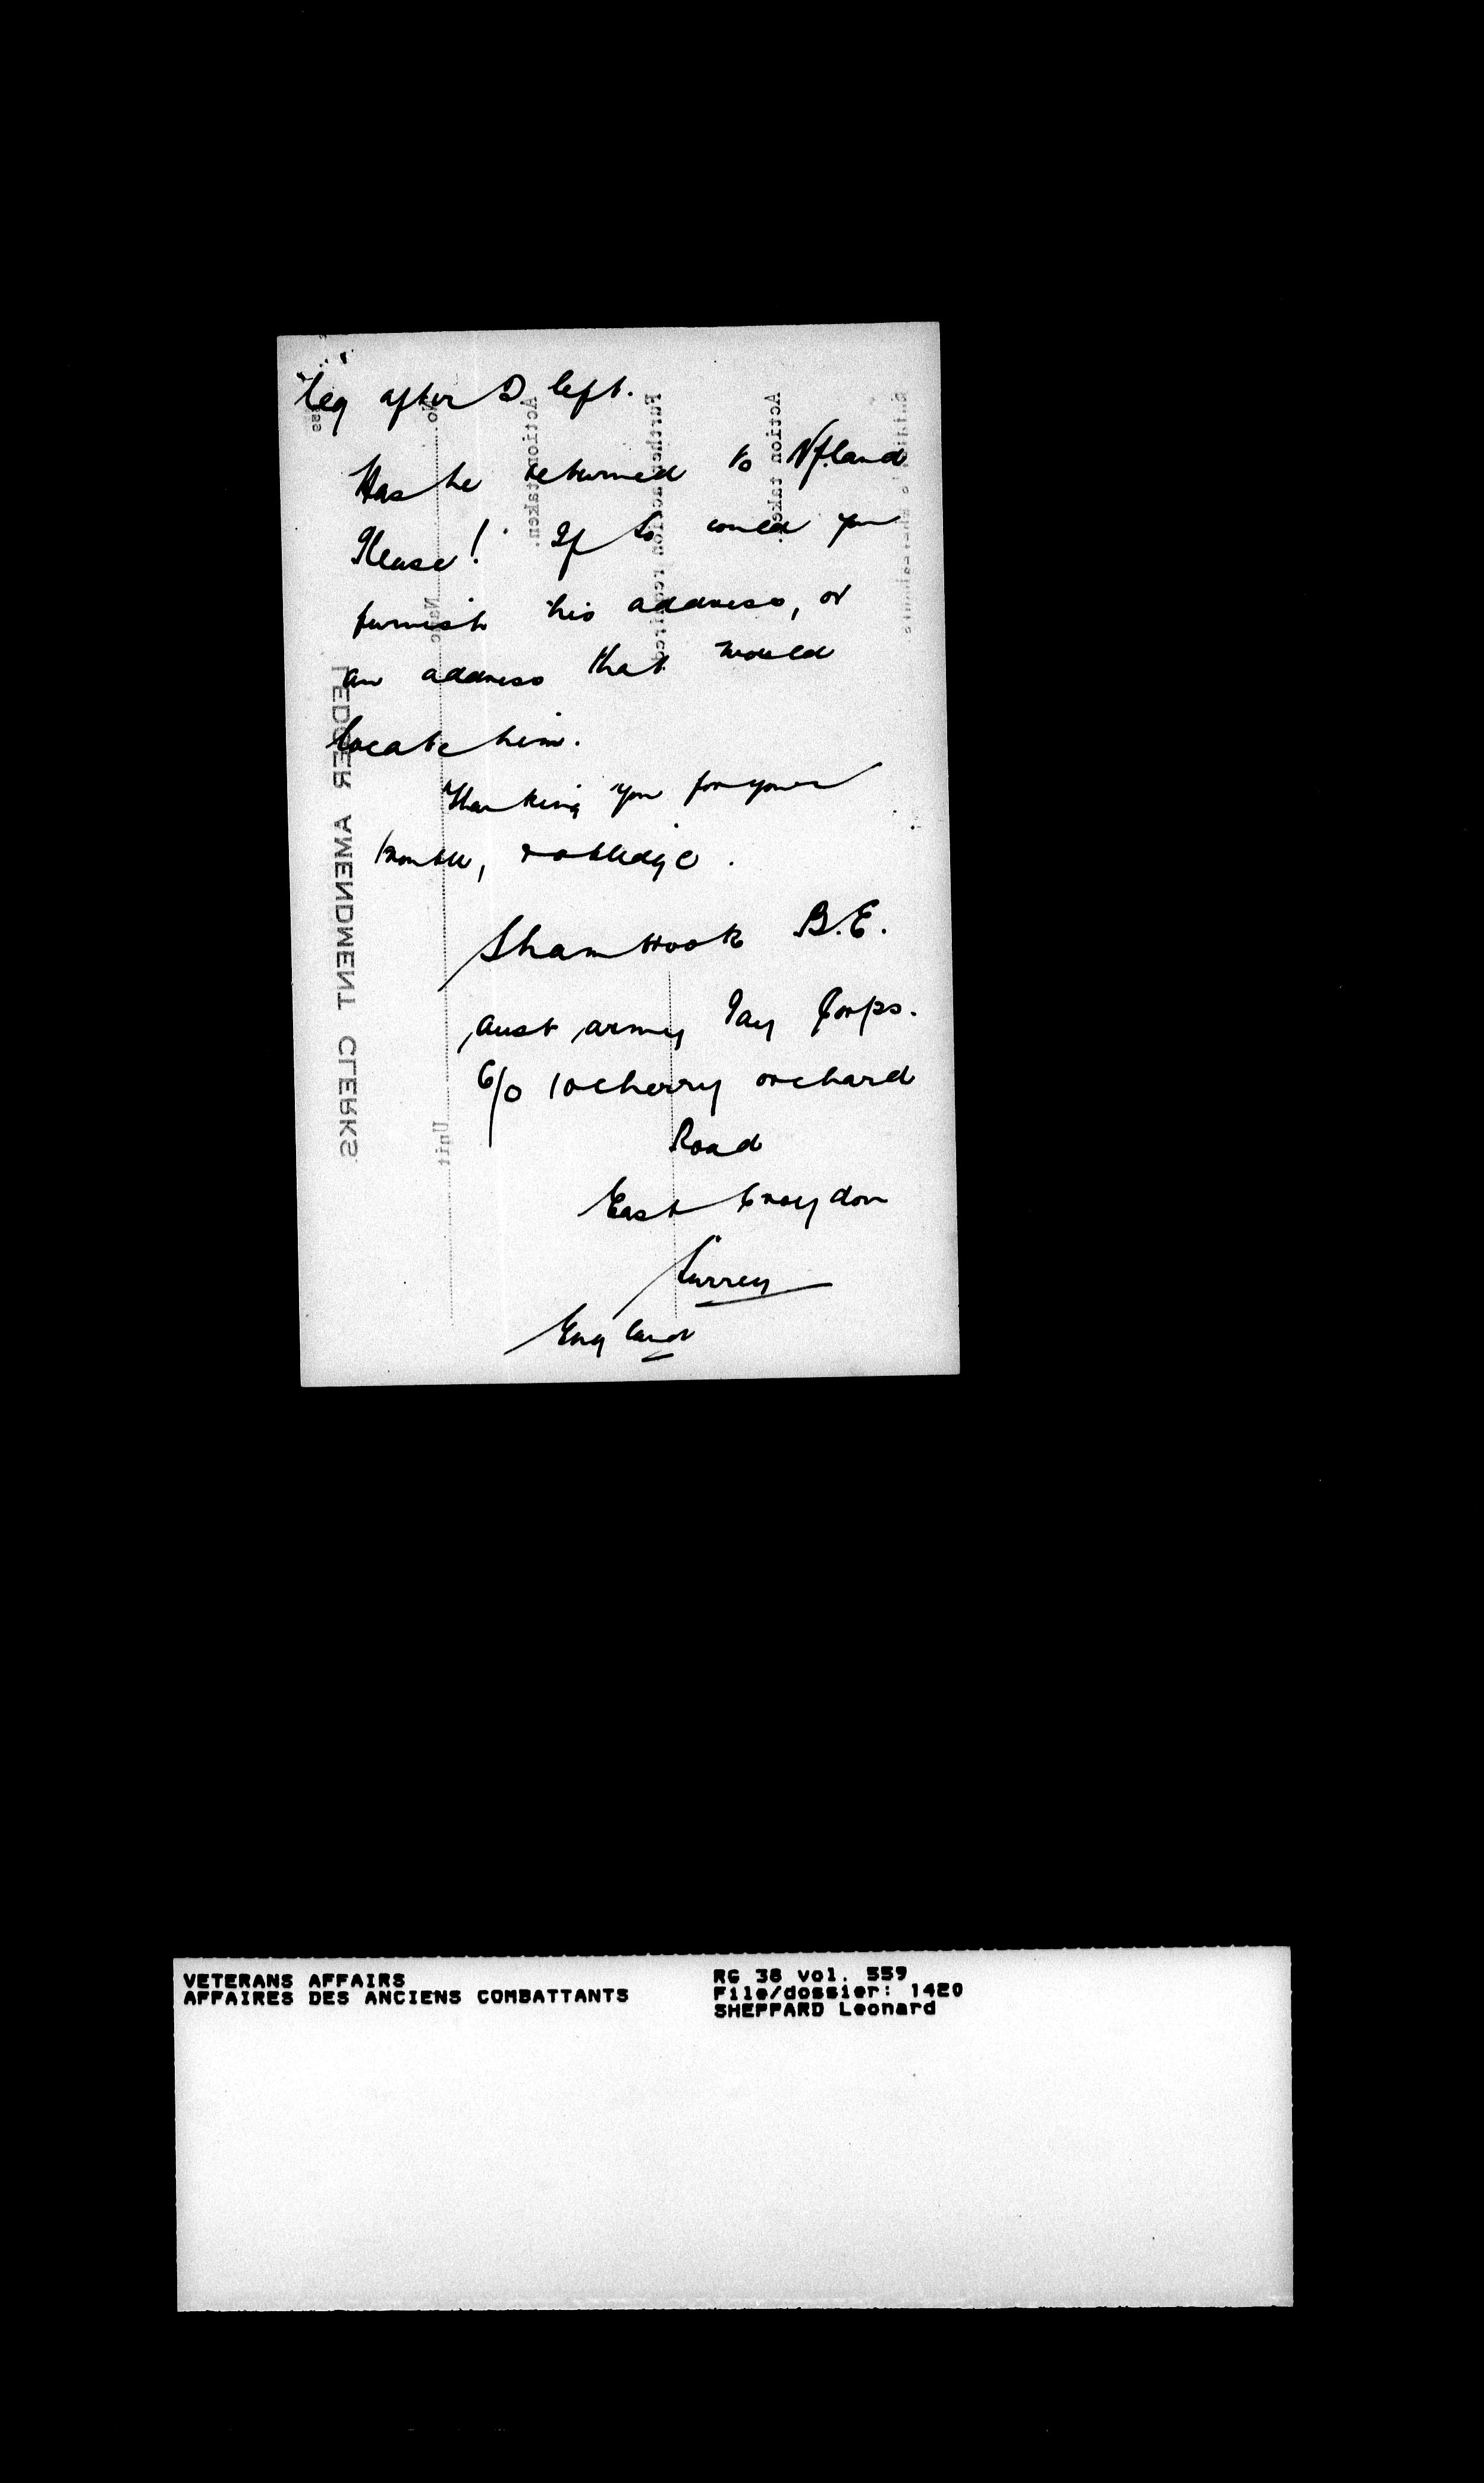 leg after I left.
Has he returned to Nfland
Please! If so could you
furnish his address, or
an address that would
locate him.
Thanking you for your
trouble, & oblidge.
Shamrook B.E.
Aust Army Pay Corps.
C/o 10 Cherry orchard
Road
East Croydon
Surrey
England
LEDGER AMENDMENT CLERKS
No. Name Unit
Action taken.
Further action required
Action taken.
VETERANS AFFAIRS
AFFAIRES DES ANCIENS COMBATTANTS
RG 38 Vol. 559
File/dossier: 1420
SHEPPARD Leonard